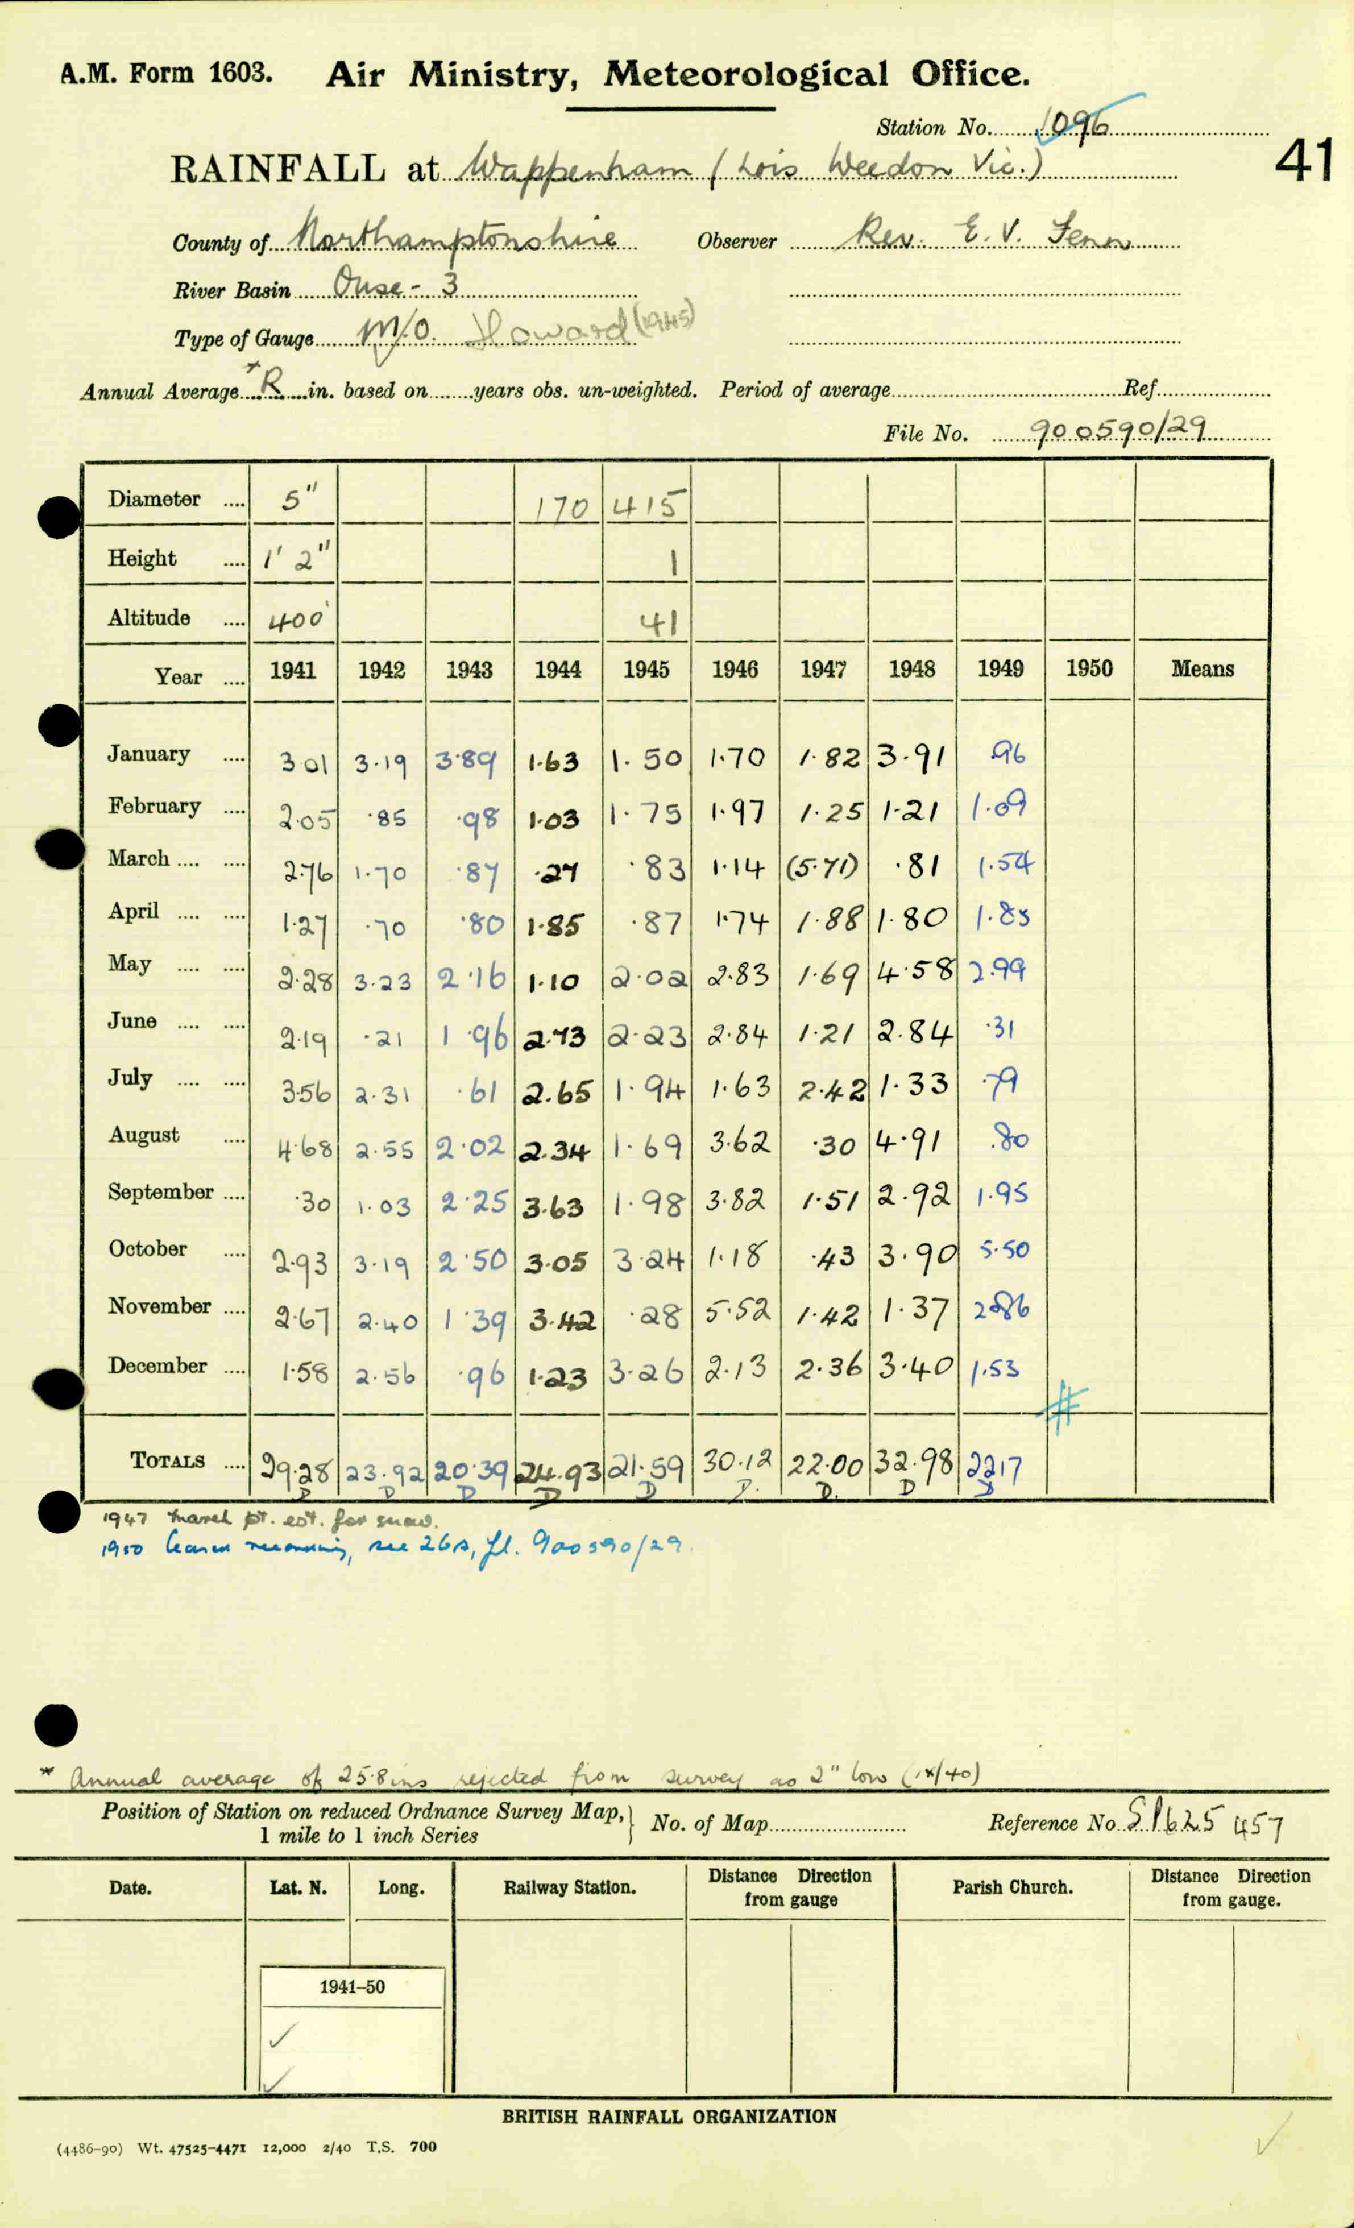 A.M. Form 1603. Air Ministry, Meteorological Office.
Station No. 1096
41
RAINFALL at Wappenham (Lois Weedon Vic.)
County of Northamptonshire Observer Rev. E. V. Fenn
River Basin Ouse - 3
Type of Gauge M/O. Howard (1945)
Annual Average * R in. based on years obs. un-weighted. Period of average Ref.
File No. 900590/29
Diameter 5" 170 415
Height 1' 2" 1
Altitude 400' 41
Year 1941 1942 1943 1944 1945 1946 1947 1948 1949 1950 Means
January 3 01 3·19 3·89 1·63 1·50 1·70 1·82 3·91 ·96
February 2·05 ·85 ·98 1·03 1·75 1·97 1·25 1·21 1·09
March 2·76 1·70 ·87 ·27 ·83 1·14 (5·71) ·81 1·54
April 1·27 ·70 ·80 1·85 ·87 1·74 1·88 1·80 1·85
May 2·28 3·23 2·16 1·10 2·02 2·83 1·69 4·58 2·99
June 2·19 ·21 1·96 2·73 2·23 2·84 1·21 2·84 ·31
July 3·56 2·31 ·61 2.65 1·94 1·63 2·42 1·33 ·79
August 4·68 2·55 2·02 2.34 1·69 3·62 ·30 4·91 ·80
September ·30 1·03 2·25 3·63 1·98 3·82 1·51 2·92 1·95
October 2·93 3·19 2·50 3·05 3·24 1·18 ·43 3·90 5·50
November 2·67 2·40 1·39 3·42 ·28 5·52 1·42 1·37 2·86
December 1·58 2·56 ·96 1·23 3·26 2·13 2·36 3·40 1·53
#
TOTALS 29·28 23.92 20·39 24.93 21·59 30·12 22·00 32·98 2217
D D D D D D. D. D D
1947 March pt. est. for snow.
1950 Ceased recording, see 26A, fl. 900590/29.
* Annual average of 25·8 ins rejected from survey as 2" low (ix/40)
Position of Station on reduced Ordnance Survey Map, 1 mile to 1 inch Series No. of Map Reference No. SP625 457
Date. Lat. N. Long. Railway Station. Distance Direction from gauge Parish Church. Distance Direction from gauge.
1941–50
BRITISH RAINFALL ORGANIZATION
(4486–90) Wt. 47525–4471 12,000 2/40 T.S. 700